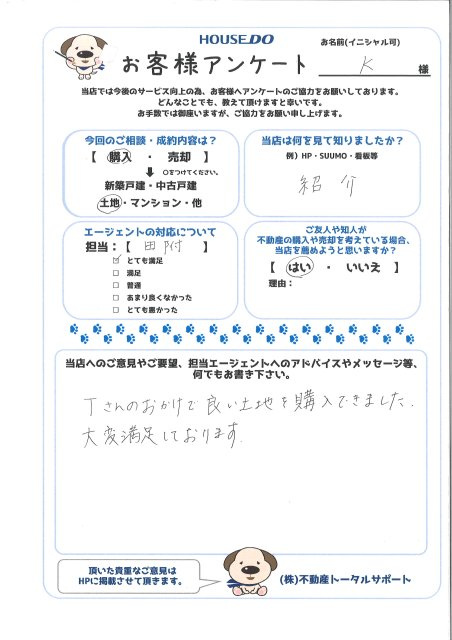 HOUSEDO
お名前(イニシャル可)
お客様アンケート
K 様
当店では今後のサービス向上の為、お客様へアンケートのご協力をお願いしております。
どんなことでも、教えて頂けますと幸いです。
お手数では御座いますが、ご協力をお願い申し上げます。
今回のご相談・成約内容は?
【 購入 ・ 売却 】
○をつけてください。
新築戸建・中古戸建
土地・マンション・他
当店は何を見て知りましたか?
例)HP・SUUMO・看板等
紹介
エージェントの対応について
担当:【 田附 】
とても満足
満足
普通
あまり良くなかった
とても悪かった
ご友人や知人が
不動産の購入や売却を考えている場合、
当店を薦めようと思いますか?
【 はい ・ いいえ 】
理由:
当店へのご意見やご要望、担当エージェントへのアドバイスやメッセージ等、
何でもお書き下さい。
Tさんのおかげで良い土地を購入できました.
大変満足しております.
頂いた貴重なご意見は
HPに掲載させて頂きます。
(株)不動産トータルサポート